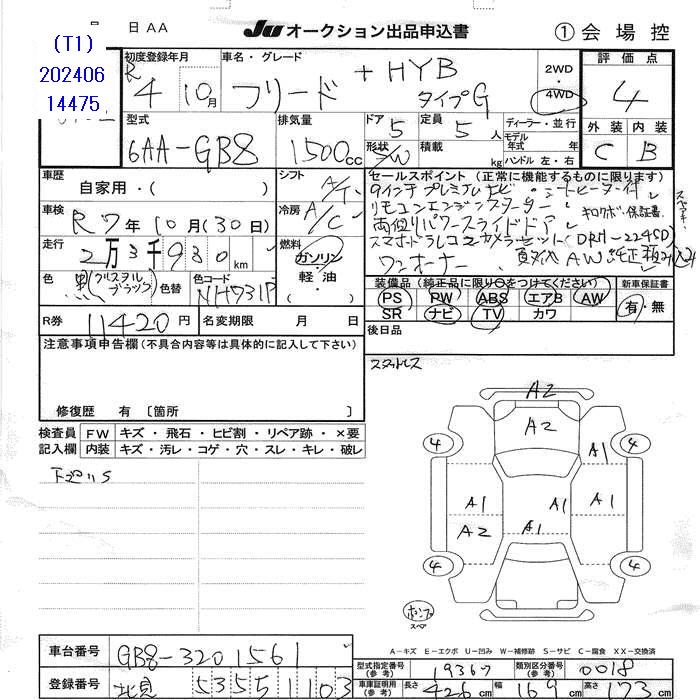 日 AA
JU オークション出品申込書
① 会場控
(T1)
202406
14475
初度登録年月
R 4 年 10 月
車名・グレード
フリード + HYB
タイプG
2WD
4WD
評価点
4
外装 内装
C B
型式
6AA-GB8
排気量
1500cc
ドア
5
定員
5人
形状
S/W
積載
kg
ディーラー・並行
モデル年式 年式
ハンドル 左・右
車歴
自家用・( )
シフト
A/T
冷房
A/C
燃料
ガソリン
軽油
( )
車検
R 7年 10月 (30日)
走行
2万3千930 km
色
黒(クリスタルブラック)
色替
色コード
NH731P
セールスポイント (正常に機能するものに限ります)
9インチプレミアムナビ・シートヒーター付
リモコンエンジンスターター・
両側パワースライドドア
キロクボ・保証書
スマホ・ドラレコ2カメラセット(DRH-224SD)
ワンオーナー
夏タイヤAW純正
装備品 (純正品に限り○をつけてください)
新車保証書
PS PW ABS エアB AW
SR ナビ TV カワ
有・無
R券 11420円
名変期限 月 日
後日品
スタッドレス
注意事項申告欄 (不具合内容等は具体的に記入して下さい)
修復歴 有 〔箇所 〕
検査員記入欄
FW キズ・飛石・ヒビ割・リペア跡・×要
内装 キズ・汚レ・コゲ・穴・スレ・キレ・破レ
下廻りS
A2
A2
4 4
A1
A1 A1
A2 A1
4 4
スペア
A-キズ E-エクボ U-凹み W-補修跡 S-サビ C-腐食 XX-交換済
車台番号
GB8-3201561
登録番号
北見 535 う 1103
型式指定番号(参考)
19367
類別区分番号(参考)
0018
車庫証明用(参考)
長さ 426cm 幅 169cm 高さ 173cm